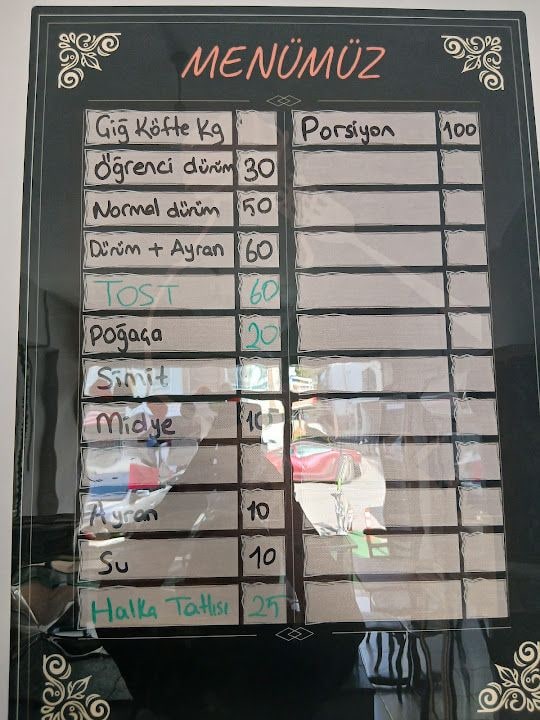 MENÜMÜZ
Çiğ Köfte Kg
Porsiyon 100
Öğrenci dürüm 30
Normal dürüm 50
Dürüm + Ayran 60
TOST 60
Poğaça 20
Simit
Midye 10
Ayran 10
Su 10
Halka Tatlısı 25